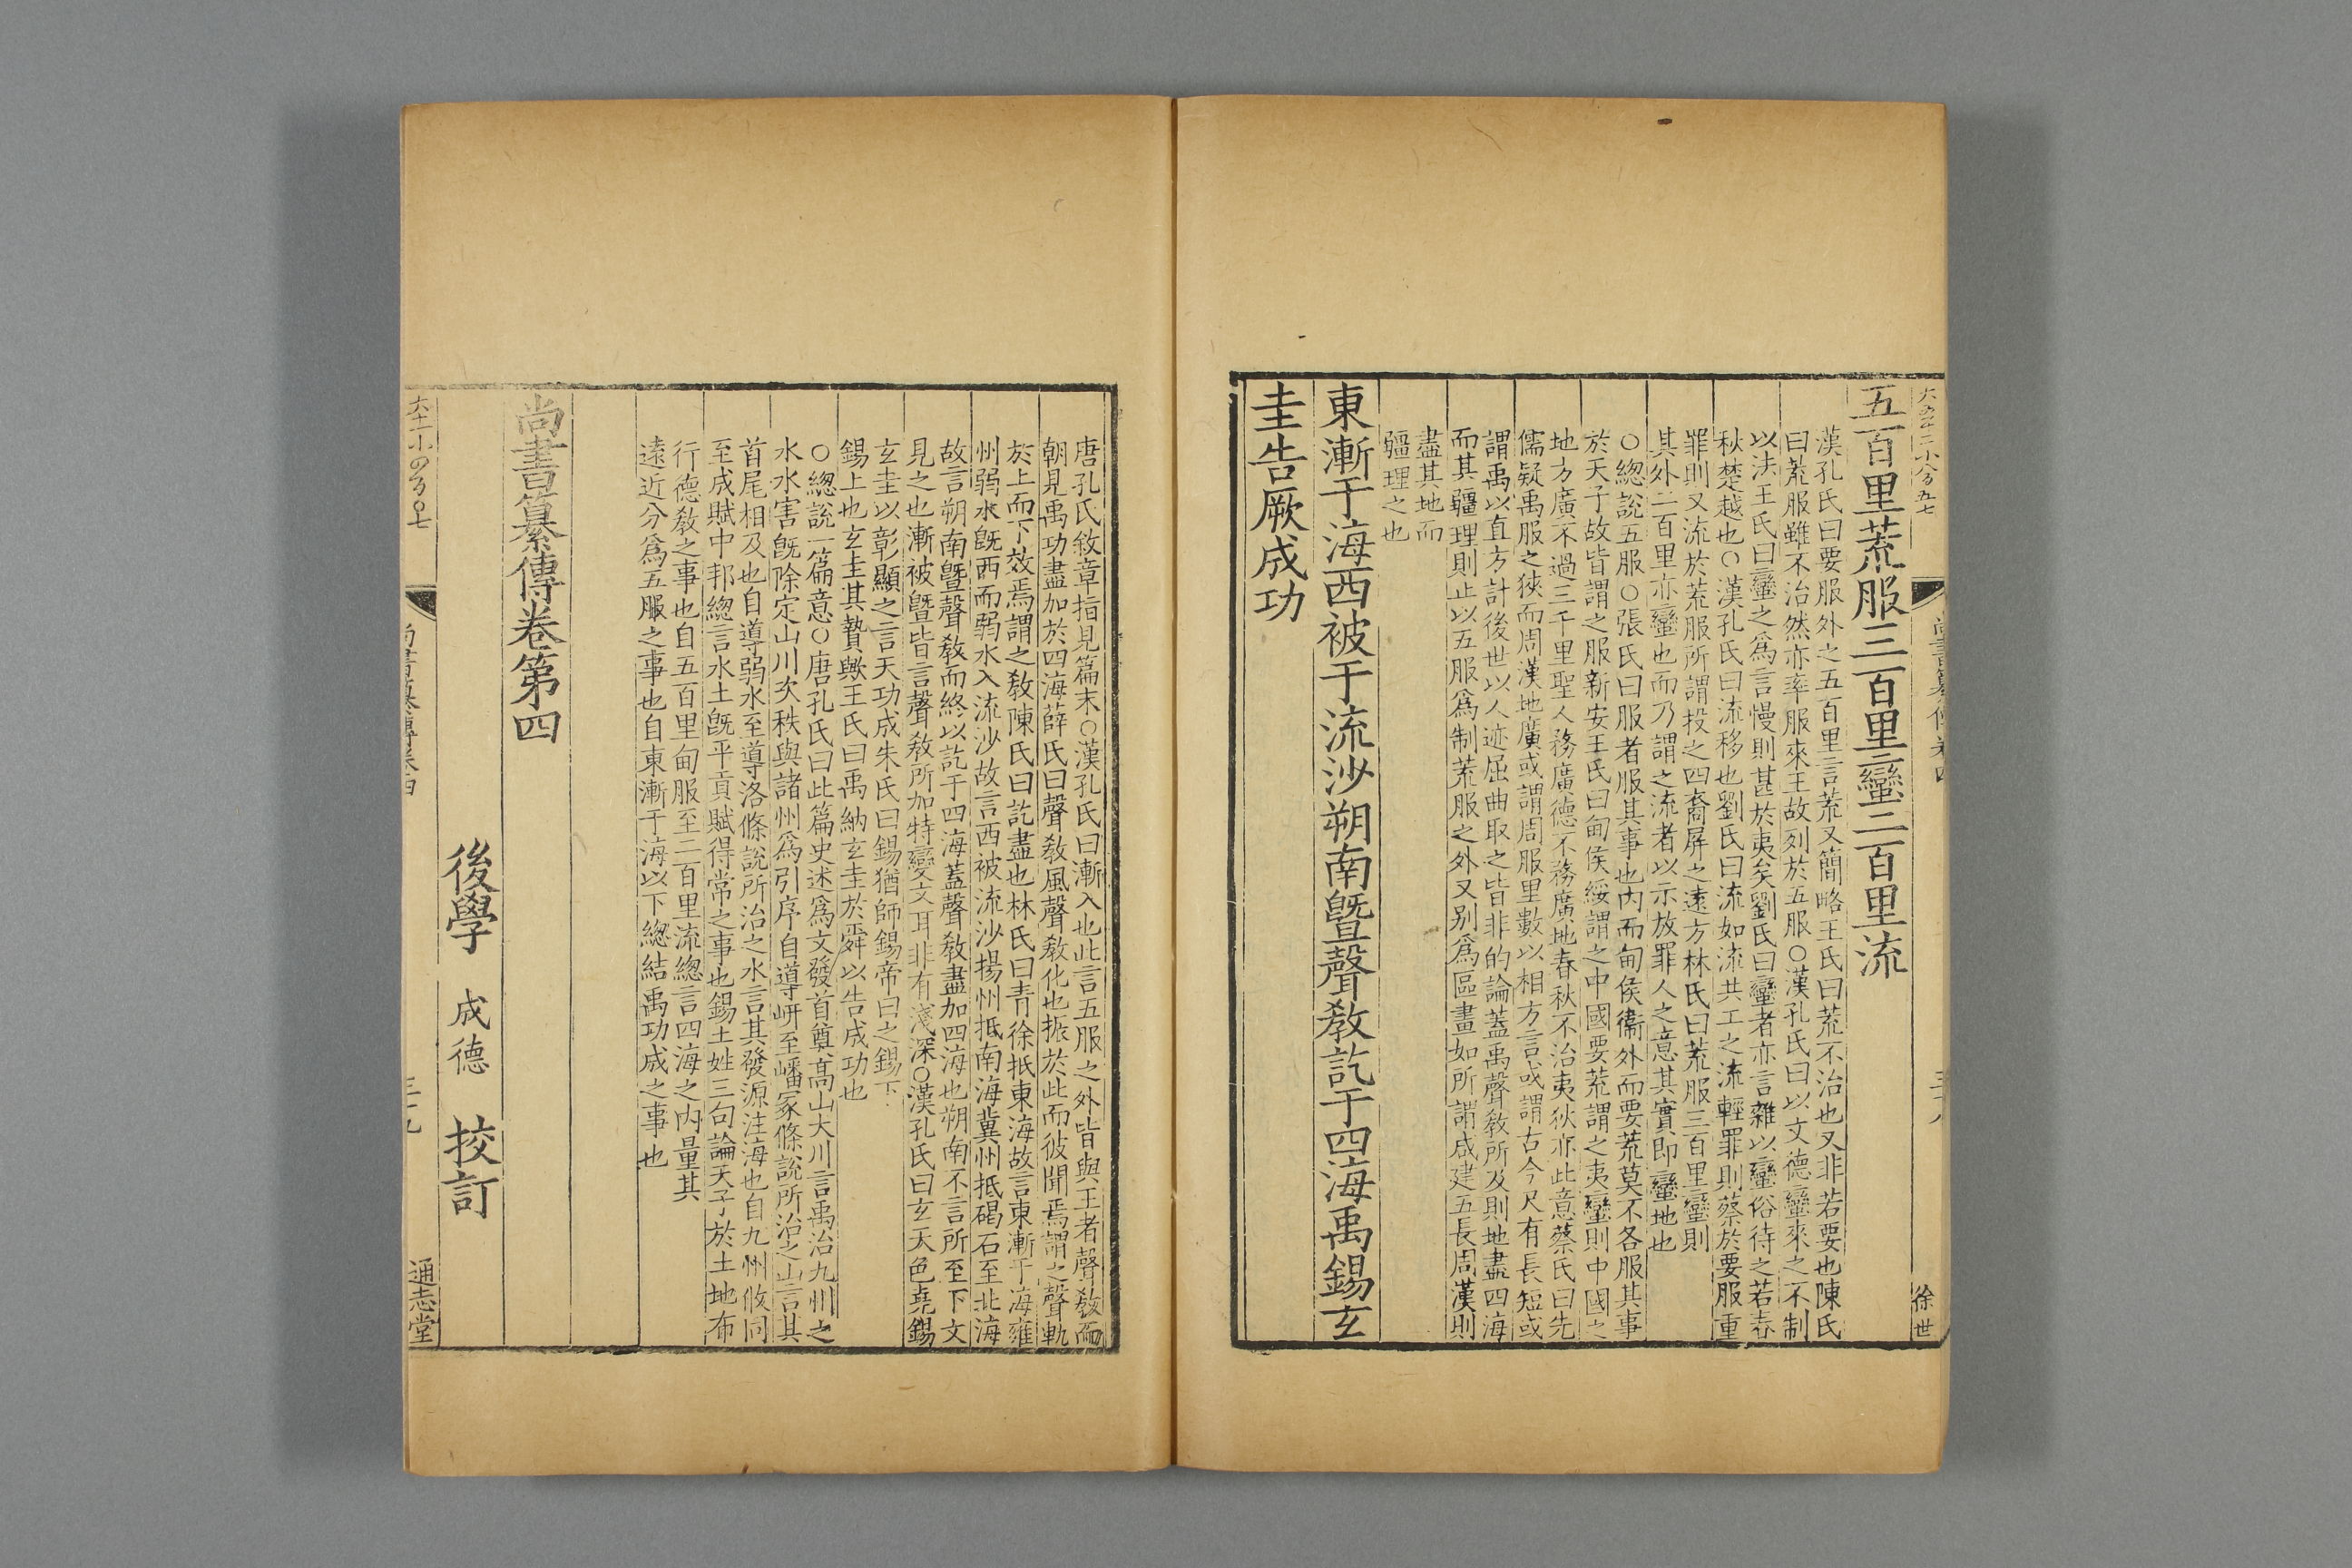 五百里荒服三百里蠻二百里流
漢孔氏曰要服外之五百里言荒又簡略王氏曰荒不治也又非若要也陳氏
曰荒服雖不治然亦率服來王故列於五服○漢孔氏曰以文德蠻來之不制
以法王氏曰蠻之爲言慢則甚於夷矣劉氏曰蠻者亦言雜以蠻俗待之若春
秋楚越也○漢孔氏曰流移也劉氏曰流如流共工之流輕罪則蔡於要服重
罪則又流於荒服所謂投之四裔屏之遠方林氏曰荒服三百里蠻則
其外二百里亦蠻也而乃謂之流者以示放罪人之意其實即蠻地也
○總說五服○張氏曰服者服其事也內而甸侯衞外而要荒莫不各服其事
於天子故皆謂之服新安王氏曰甸侯綏謂之中國要荒謂之夷蠻則中國之
地方廣不過三千里聖人務廣德不務廣地春秋不治夷狄亦此意蔡氏曰先
儒疑禹服之狹而周漢地廣或謂周服里數以相方言或謂古今尺有長短或
謂禹以直方計後世以人迹屈曲取之皆非的論蓋禹聲敎所及則地盡四海
而其疆理則止以五服爲制荒服之外又别爲區畫如所謂咸建五長周漢則
盡其地而
疆理之也
東漸于海西被于流沙朔南曁聲敎訖于四海禹錫玄
圭告厥成功
徐世
唐孔氏敘章指見篇末○漢孔氏曰漸入也此言五服之外皆與王者聲敎而
朝見禹功盡加於四海薛氏曰聲敎風聲敎化也振於此而彼聞焉謂之聲軌
於上而下效焉謂之敎陳氏曰訖盡也林氏曰青徐抵東海故言東漸于海雍
州弱水旣西而弱水入流沙故言西被流沙揚州抵南海冀州抵碣石至北海
故言朔南曁聲敎而終以訖于四海蓋聲敎盡加四海也朔南不言所至下文
見之也漸被曁皆言聲敎所加特變文耳非有淺深○漢孔氏曰玄天色堯錫
玄圭以彰顯之言天功成朱氏曰錫猶師錫帝曰之錫下
錫上也玄圭其贄歟王氏曰禹納玄圭於舜以告成功也
○總說一篇意○唐孔氏曰此篇史述爲文發首奠高山大川言禹治九州之
水水害旣除定山川次秩與諸州爲引序自導岍至嶓冢條說所治之山言其
首尾相及也自導弱水至導洛條說所治之水言其發源注海也自九州攸同
至成賦中邦總言水土旣平貢賦得常之事也錫土姓三句論天子於土地布
行德敎之事也自五百里甸服至二百里流總言四海之內量其
遠近分爲五服之事也自東漸于海以下總結禹功成之事也
尚書纂傳卷第四
後學 成德 挍訂
尚書纂傳卷四
通志堂